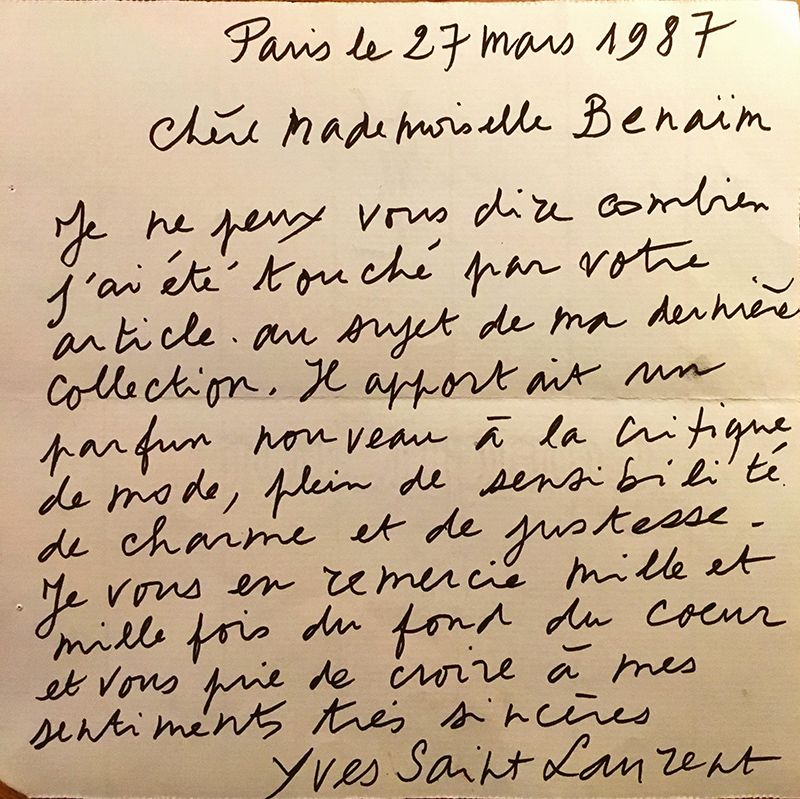 Paris le 27 mars 1987
Chère Mademoiselle Benaïm
Je ne peux vous dire combien
j'ai été touché par votre
article au sujet de ma dernière
collection. Il apportait un
parfun nouveau à la critique
de mode, plein de sensibilité
de charme et de justesse.
Je vous en remercie mille et
mille fois du fond du coeur
et vous prie de croire à mes
sentiments très sincères
Yves Saint Laurent